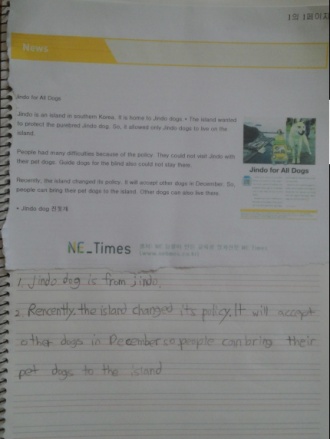 1일 1품이지
News
Jindo for All Dogs
Jindo is an island in southern Korea. It is home to Jindo dogs.* The island wanted
to protect the purebred Jindo dog. So, it allowed only Jindo dogs to live on the
island.
People had many difficulties because of the policy. They could not visit Jindo with
their pet dogs. Guide dogs for the blind also could not stay there.
Recently, the island changed its policy. It will accept other dogs in December. So,
people can bring their pet dogs to the island. Other dogs can also live there.
* Jindo dog 진돗개
Jindo for All Dogs
NE_Times
NE Times
1. Jindo dog is from jindo.
2. Rencently, the island changed its policy. It will accept
other dogs in December so people can bring their
pet dogs to the island